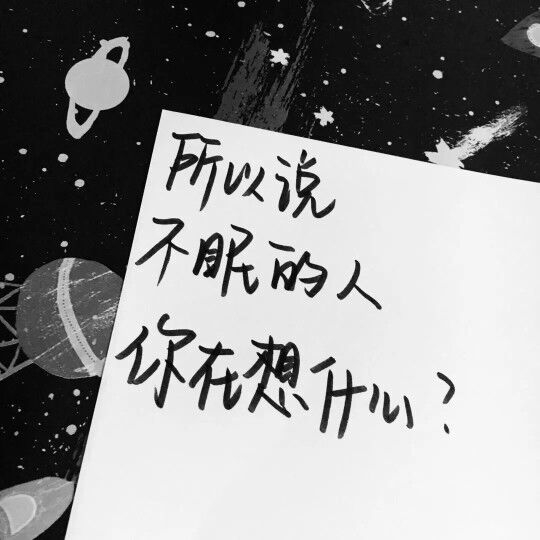 所以说
不眠的人
你在想什么?